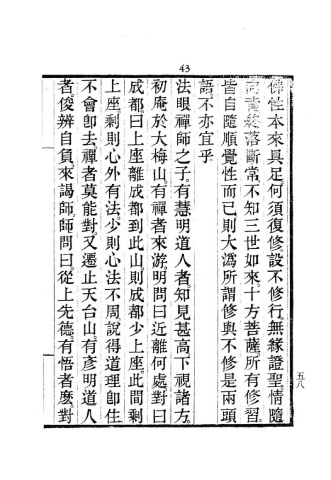 43
佛性本來具足何須復修設不修行。無緣證聖。情隨
向背終落斷常不知三世如來。十方菩薩。所有修習。
皆自隨順覺性而已則大溈所謂修與不修是兩頭
語。不亦宜乎
法眼禪師之子。有慧明道人者。知見甚高下視諸方。
初庵於大梅山有禪者來游。明問曰近離何處對曰
成都曰上座離成都到此山。則成都少上座。此間剩
上座剩則心外有法。少則心法不周說得道理即住
不會即去禪者莫能對。又遷止天台山有彥明道人
者。俊辨自負。來謁師師問曰。從上先德。有悟者麽。對
五八